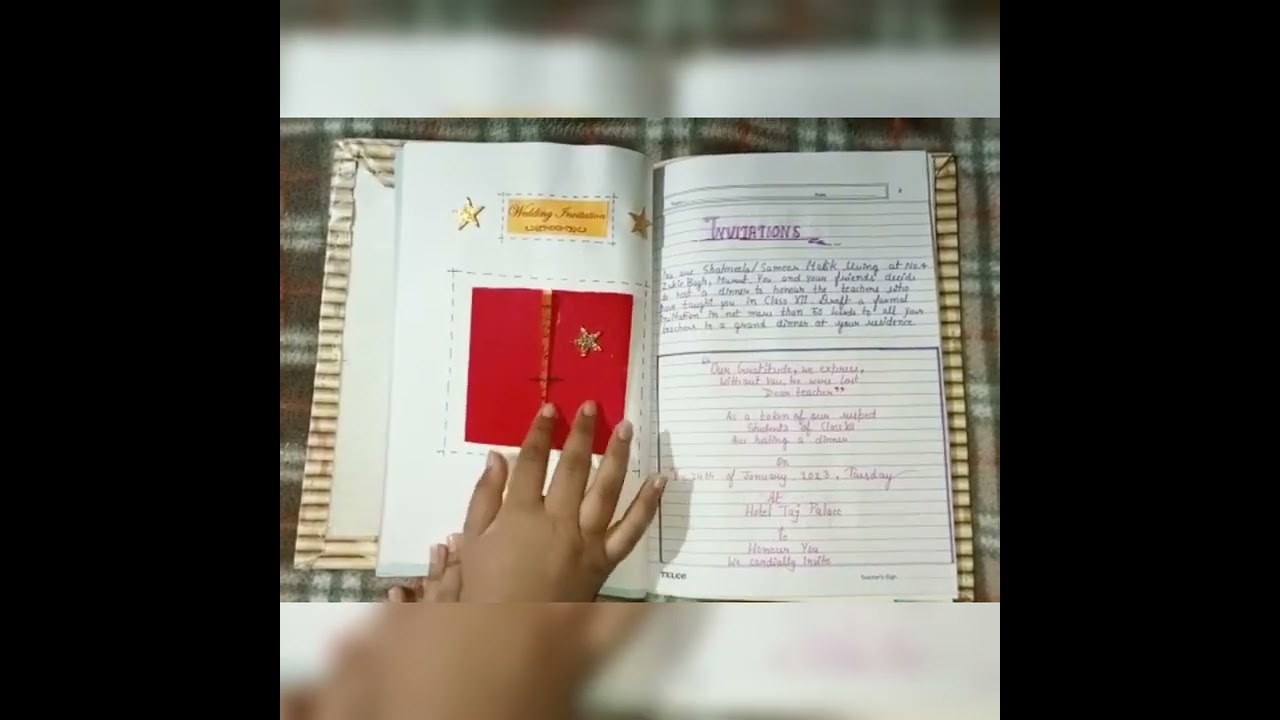 Wedding Invitation
INVITATIONS
You are Shatmeela/Sameer Malik living at No.4
Bagh, Meerut. You and your friends decide
to host a dinner to honour the teachers who
have taught you in Class XII. Draft a formal
invitation in not more than 50 words to all your
teachers to a grand dinner at your residence
"Our Gratitude, we express,
Without You, We were Lost
Dear teacher"
As a token of our respect
Students of Class XII
Are hosting a dinner
On
24th of January 2023, Tuesday
At
Hotel Taj Palace
To
Honour You
We cordially Invite
Teacher's Sign